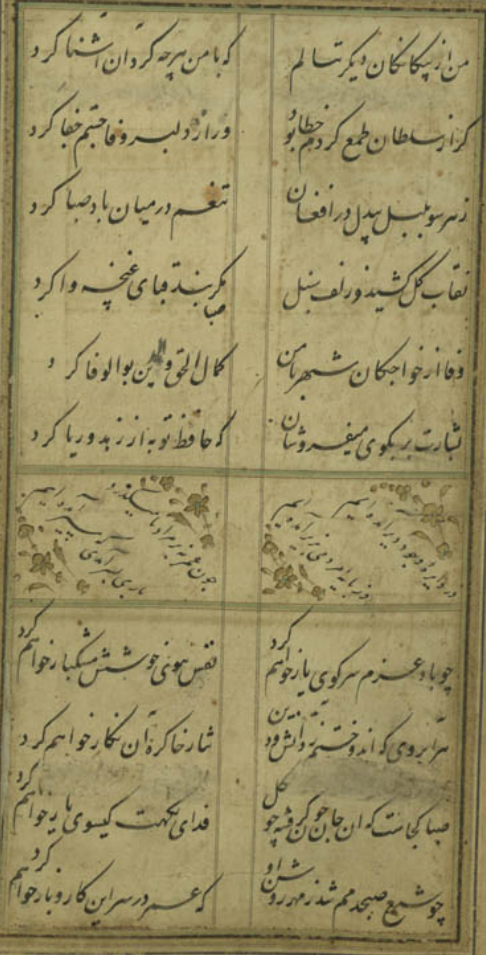 من از بیکانکان دیکر ننالم که با من هرچه کرد ان اشنا کرد
کر از سلطان طمع کردم خطا بود ور از دلبر وفا جستم جفا کرد
زهر سو بلبل بیدل در افغان تنعم درمیان باد صبا کرد
نقاب کل کشید و زلف سنبل کره بند قبای غنچه وا کرد
صبا
وفا از خواجکان شهر با من کمال الحق والدین بوالوفا کرد
بشارت بر بکوی میفروشان که حافظ توبه از زهد و ریا کرد
چو باد عزم سر کوی یار خواهم کرد نفس ببوی خوشش مشکبار خواهم کرد
هر ابروی که اندوختم ز دانش و دین نثار خاک ره ان نکار خواهم کرد
صبا کجاست که ان جان خون کرفته چو کل فدای نکهت کیسوی یار خواهم کرد
چو شمع صبحدمم شد ز مهر روشن او که عمر در سر این کار و بار خواهم کرد